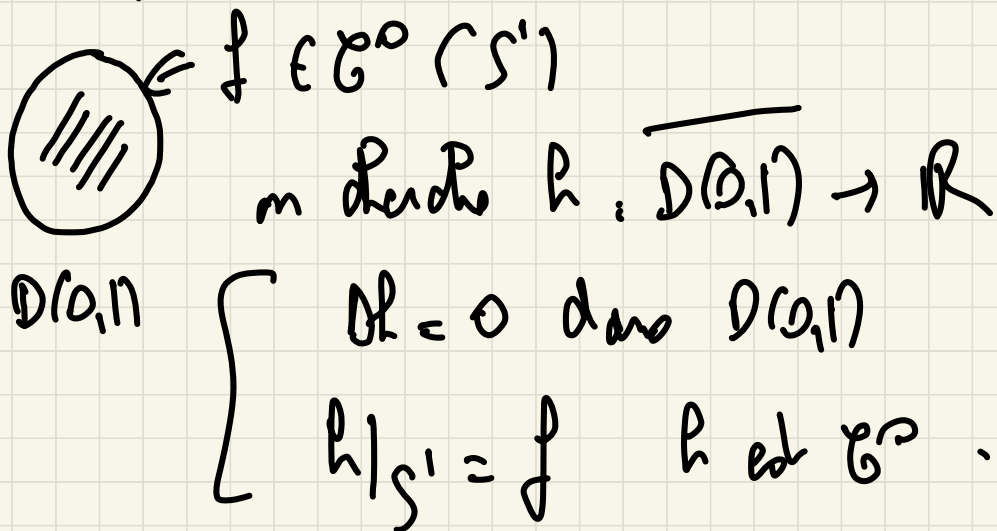 f ∈ C⁰(S¹)
on cherche h : \overline{D(0,1)} → ℝ
D(0,1) { Δh = 0 dans D(0,1)
h|_{S¹} = f h est C⁰.